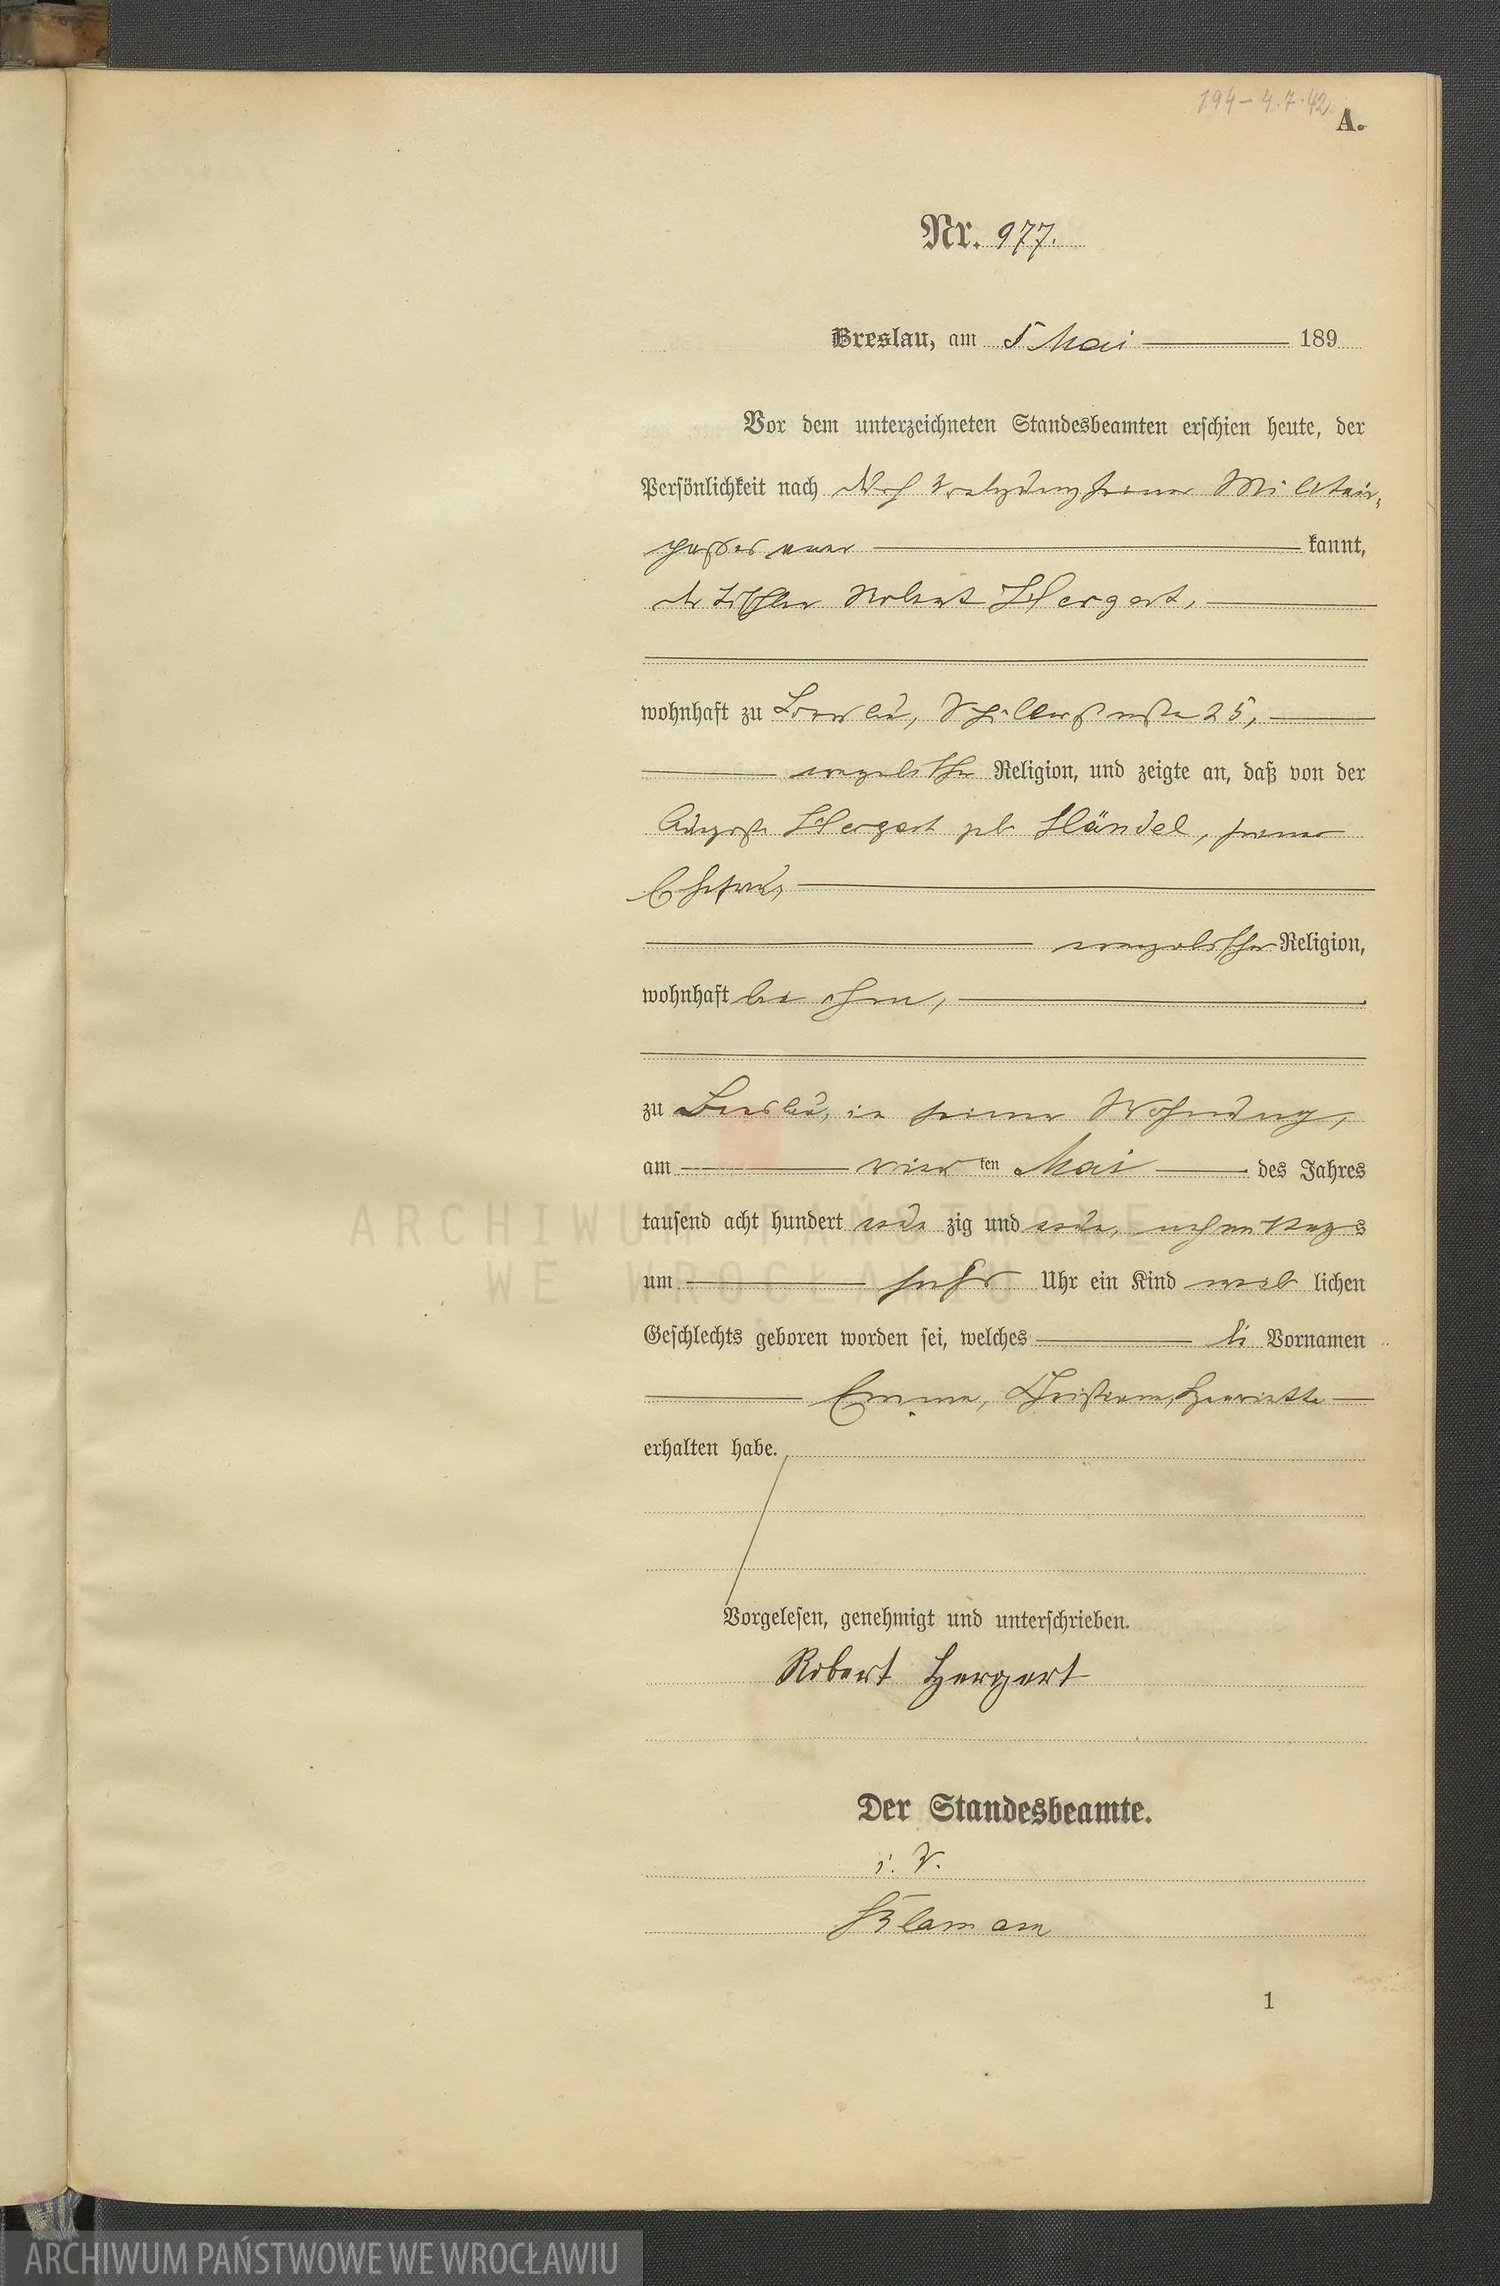 194 – 4.7.42
A.
Nr. 977.
Breslau, am 5 Mai 189
Vor dem unterzeichneten Standesbeamten erschien heute, der
Persönlichkeit nach seines Militair-
passes kannt,
der Tischler Robert Hergert,
wohnhaft zu Breslau, Schillerstraße 25,
evangelischer Religion, und zeigte an, daß von der
Auguste Hergert geb Händel, seiner
Ehefrau,
evangelischer Religion,
wohnhaft bei ihm,
zu Breslau, in seiner Wohnung,
am vier ten Mai des Jahres
tausend acht hundert zig und nachmittags
um Uhr ein Kind weib lichen
Geschlechts geboren worden sei, welches die Vornamen
Emma, Christiane, Henriette
erhalten habe.
Vorgelesen, genehmigt und unterschrieben.
Robert Hergert
Der Standesbeamte.
i. V.
1
ARCHIWUM PAŃSTWOWE
WE WROCŁAWIU
ARCHIWUM PAŃSTWOWE WE WROCŁAWIU